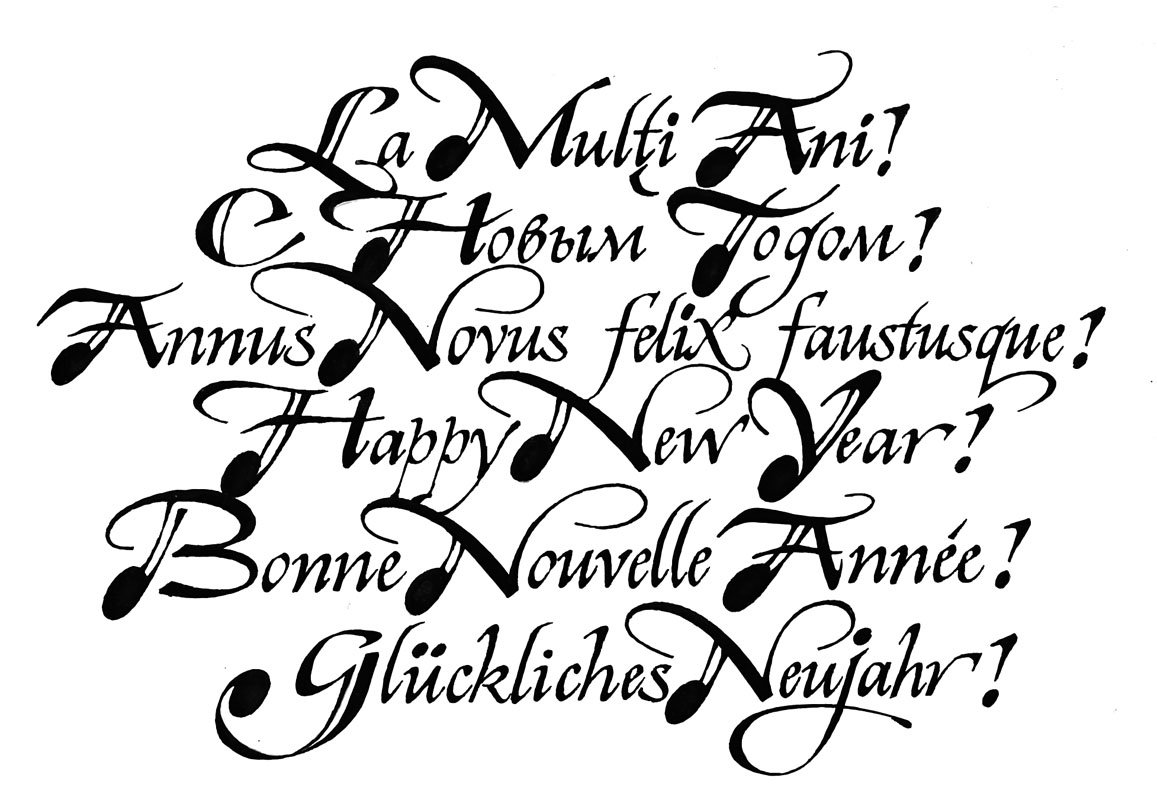 La Mulţi Ani!
С Новым Годом!
Annus Novus felix faustusque!
Happy New Year!
Bonne Nouvelle Année!
Glückliches Neujahr!